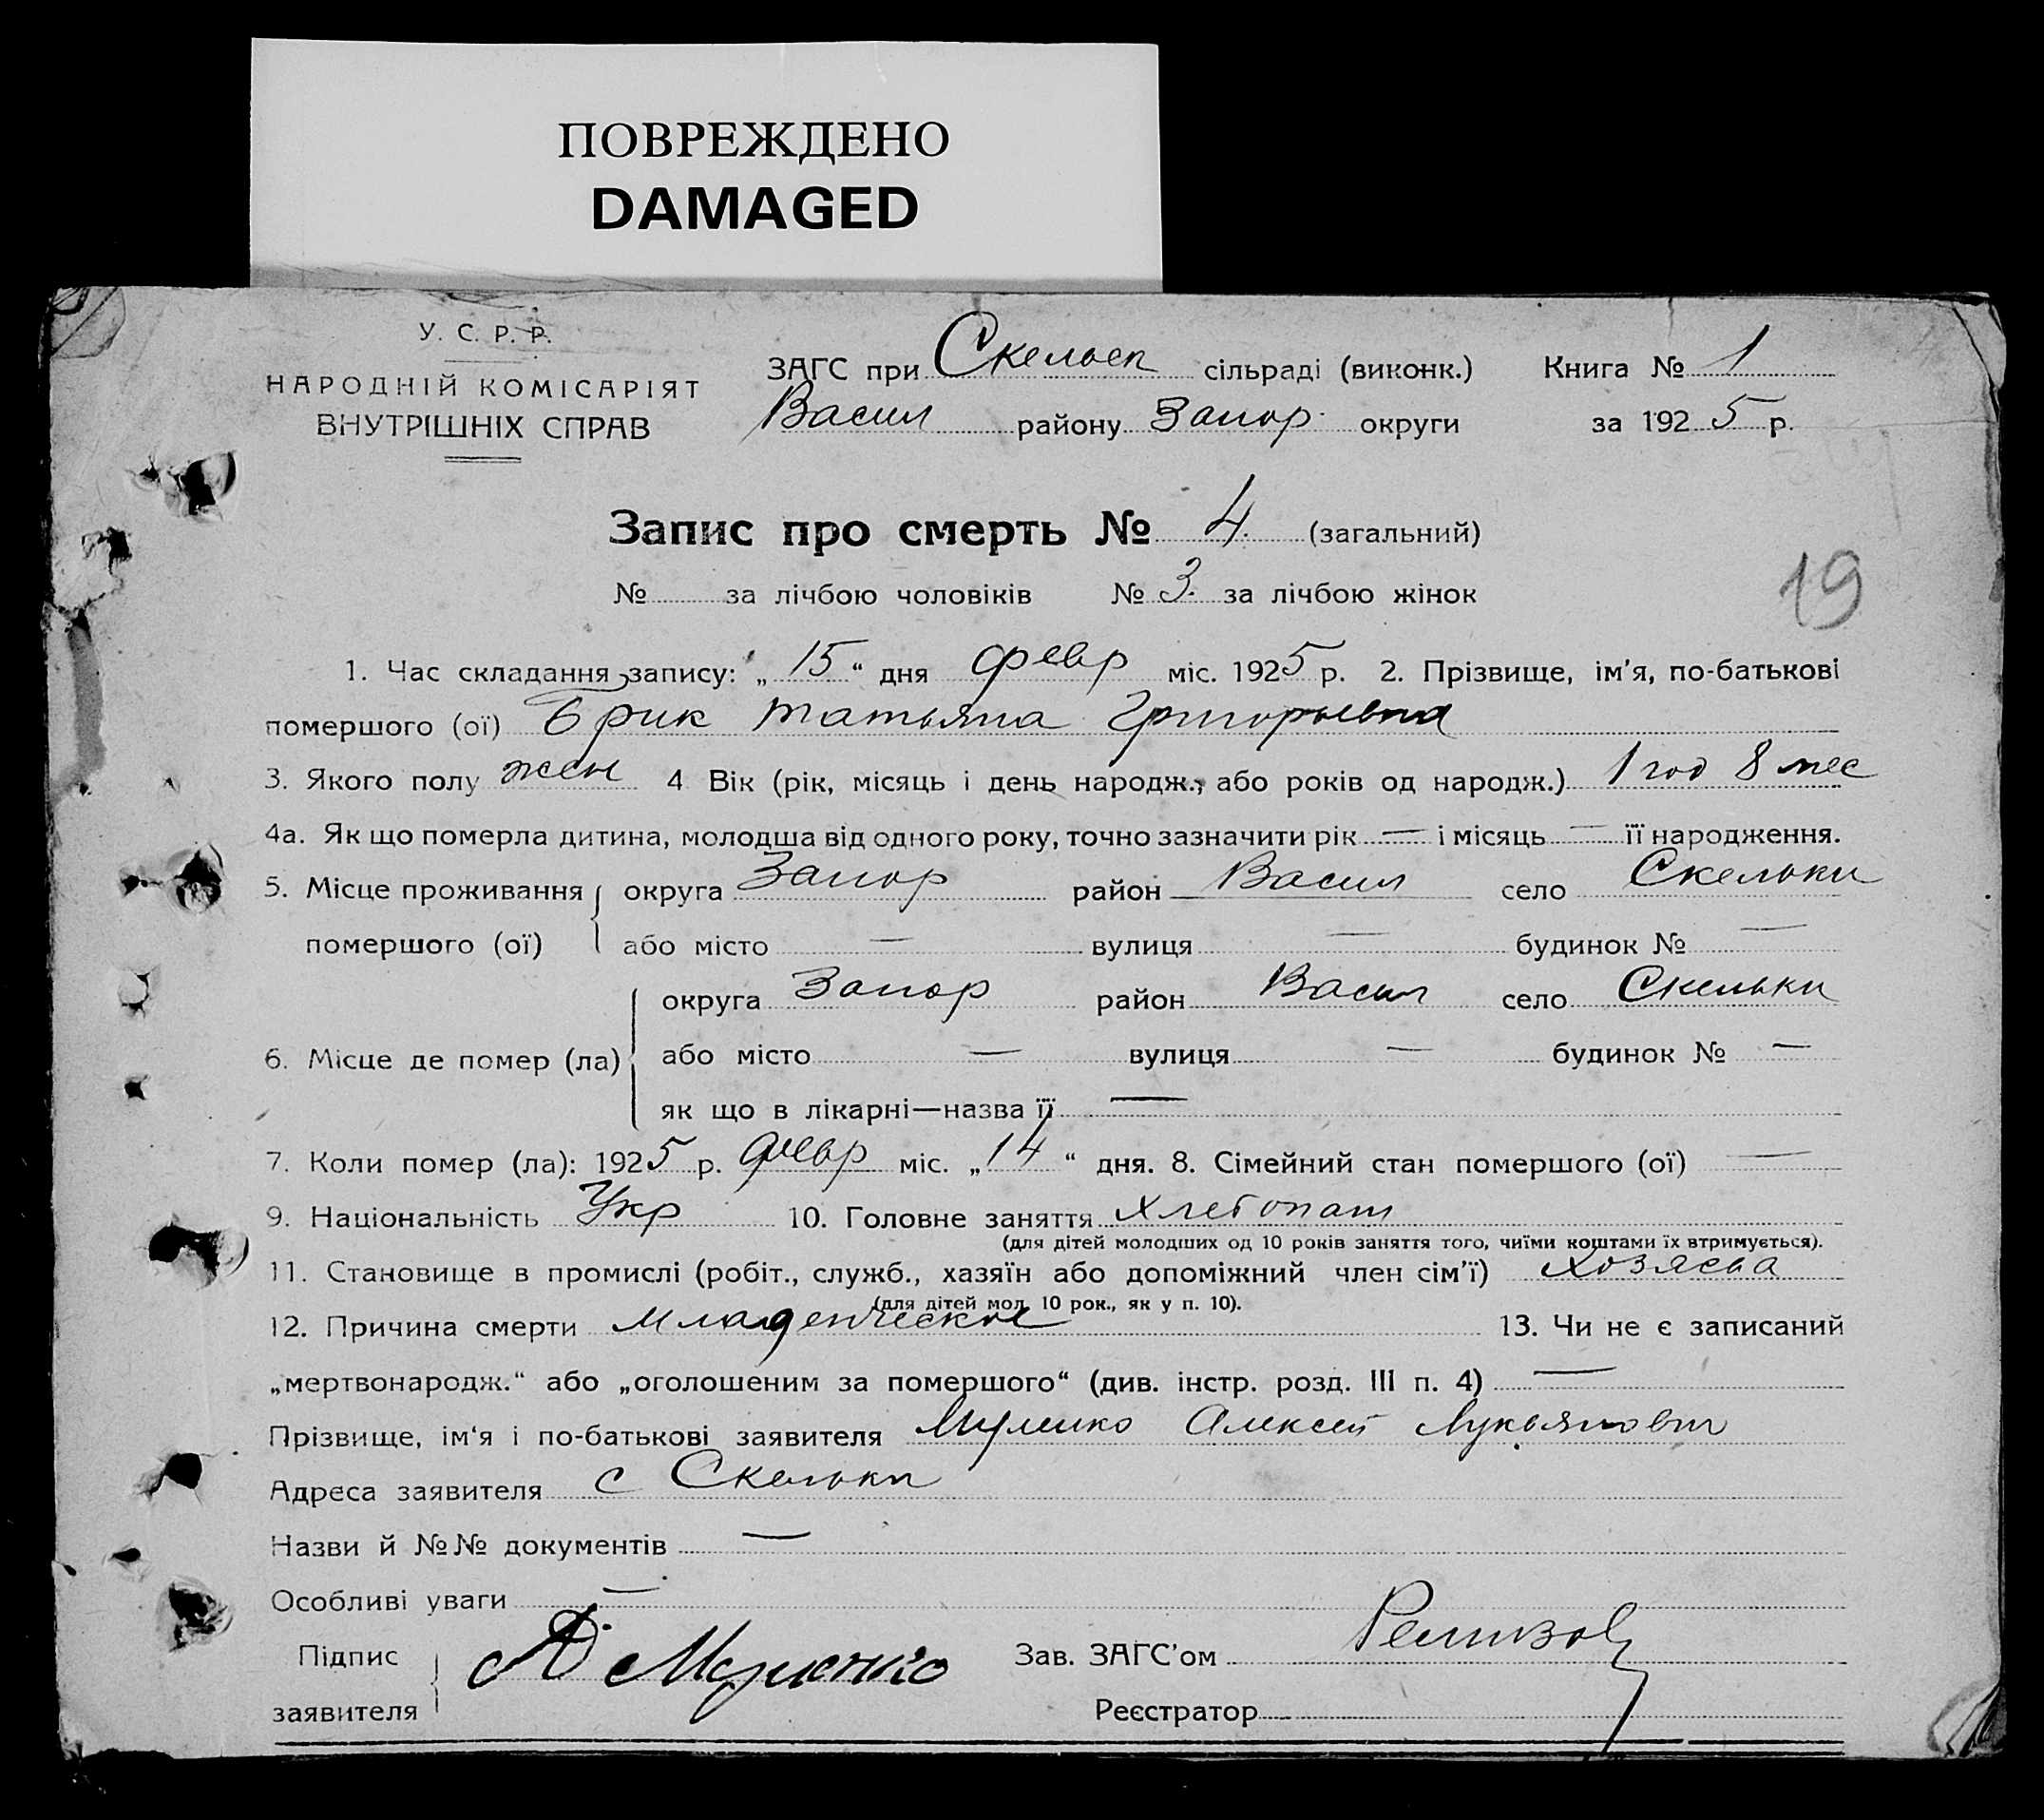 ПОВРЕЖДЕНО
DAMAGED
У. С. Р. Р.
НАРОДНІЙ КОМІСАРІЯТ
ВНУТРІШНІХ СПРАВ
ЗАГС при Скельск сільраді (виконк.) Книга № 1
Васил району Запор округи за 1925 р.
Запис про смерть № 4. (загальний)
№ за лічбою чоловіків № 3. за лічбою жінок
19
1. Час складання запису: „15“ дня февр міс. 1925 р. 2. Прізвище, ім'я, по-батькові
помершого (ої) Брик Татьяна Григорьевна
3. Якого полу жен 4 Вік (рік, місяць і день народж., або років од народж.) 1 год 8 мес
4а. Як що померла дитина, молодша від одного року, точно зазначити рік — і місяць — її народження.
5. Місце проживання округа Запор район Васил село Скельки
помершого (ої) або місто — вулиця — будинок № —
округа Запор район Васил село Скельки
6. Місце де помер (ла) або місто — вулиця — будинок № —
як що в лікарні—назва її —
7. Коли помер (ла): 1925 р. февр міс. „14“ дня. 8. Сімейний стан помершого (ої) —
9. Національність Укр 10. Головне заняття Хлебопаш
(для дітей молодших од 10 років заняття того, чиїми коштами їх втримується).
11. Становище в промислі (робіт., служб., хазяїн або допоміжний член сім'ї) Хозяева
(для дітей мол. 10 рок., як у п. 10).
12. Причина смерти младенческое 13. Чи не є записаний
„мертвонародж.“ або „оголошеним за помершого“ (див. інстр. розд. III п. 4) —
Прізвище, ім'я і по-батькові заявителя Алексей Лукьянович
Адреса заявителя с Скельки
Назви й №№ документів —
Особливі уваги —
Підпис
заявителя
Зав. ЗАГС'ом Ремизов
Реєстратор